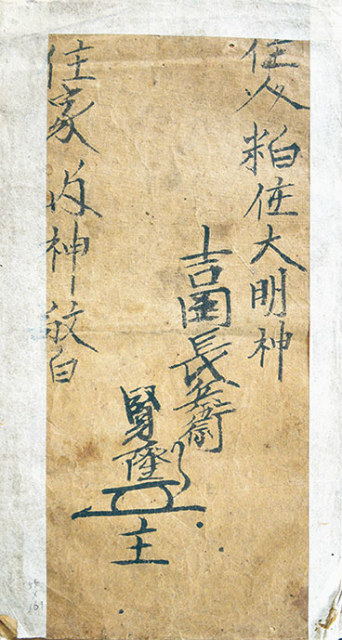 住 粕住大明神
吉岡長兵衛
賢隆 主
住家内神敬白